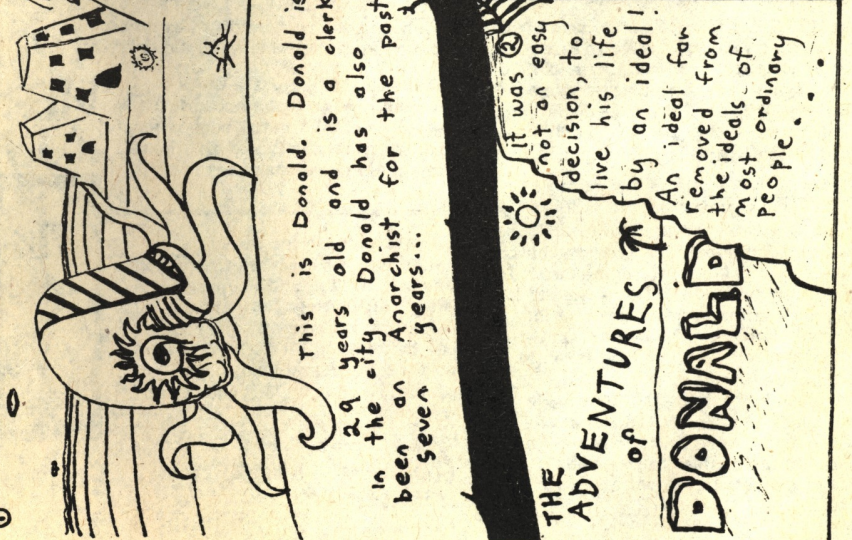 This is Donald. Donald is
29 years old and is a clerk
in the city. Donald has also
been an Anarchist for the past
seven years...
THE
ADVENTURES
of
DONALD
②
it was
not an easy
decision, to
live his life
by an ideal!
An ideal far
removed from
the ideals of
most ordinary
people . . . .